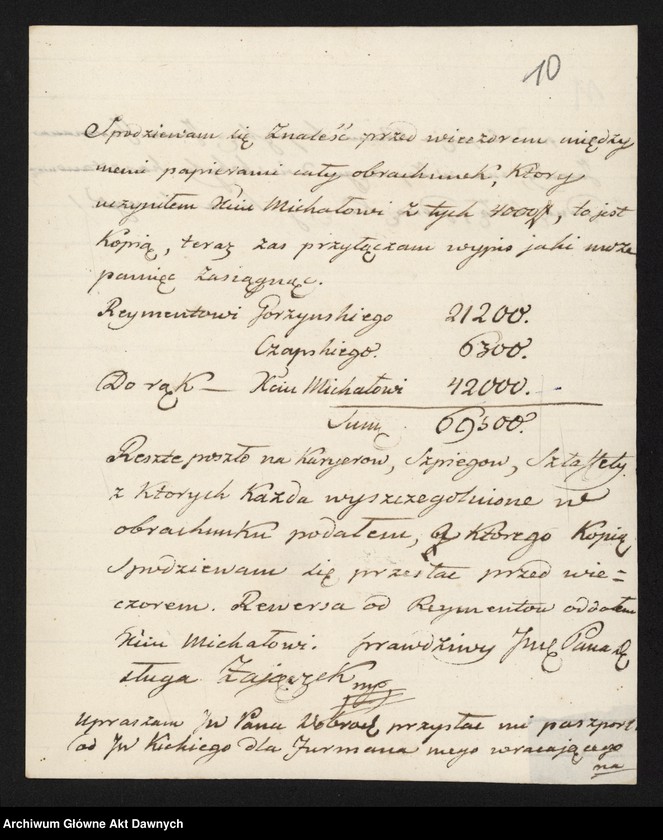 10
Spodziewam się Znaleść przed wieczorem między
memi papierami cały obrachunek, Ktory
uczyniłem Xciu Michałowi z tych 4000, to jest
Kopią, teraz zas przyłączam wypis jaki może
pamięc zasiągnąc.
Reymentowi Gorzynskiego 21200.
Czapskiego. 6300.
Do rąk — Xciu Michałowi 42000.
Sumą 69500.
Reszte poszło na Kuryerow, Szpiegow, Sztaffety.
z Ktorych Kazda wyszczegolnione w
obrachunku podałem, Ktorego Kopią
Spodziewam się przesłac przed wie=
czorem. Rewersa od Reymentow oddałem
Xciu Michałowi. prawdziwy Pana
sługa Zajączek mp
upraszam JW Pana Dobrod przysłac mi paszport
od JW Kickiego dla Furmana mego wracającego
na
Archiwum Główne Akt Dawnych